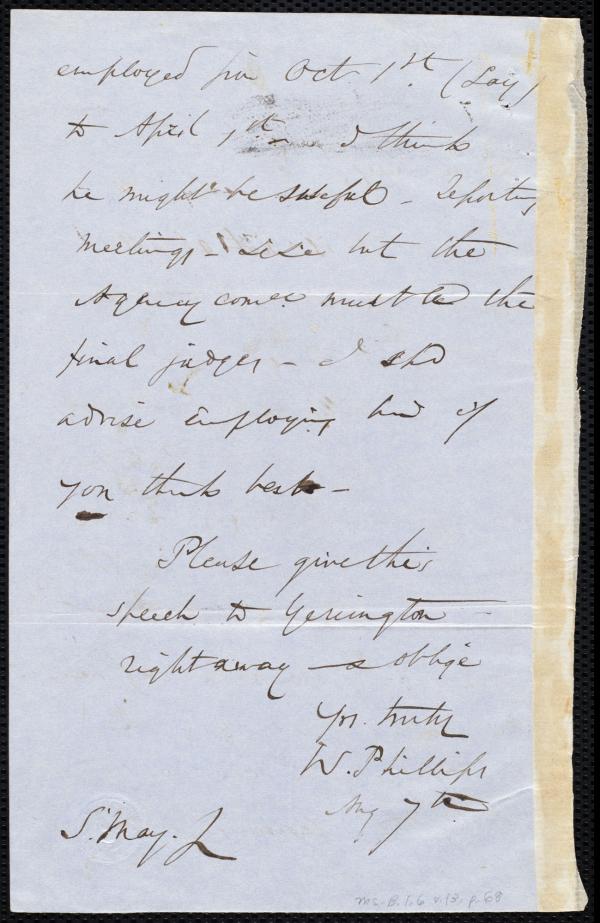 employed fm Oct 1st (Say)
to April 1st I think
he might be useful - reporting
meetings - &c &c but the
Agency comee must be the
final judges - I shd
advise employing him if
you think best -
Please give this
speech to Yerrington
right away - & oblige
Yrs. truly
W. Phillips
Aug 7th
S. May. Jr
Ms. B.1.6 v.13, p.68